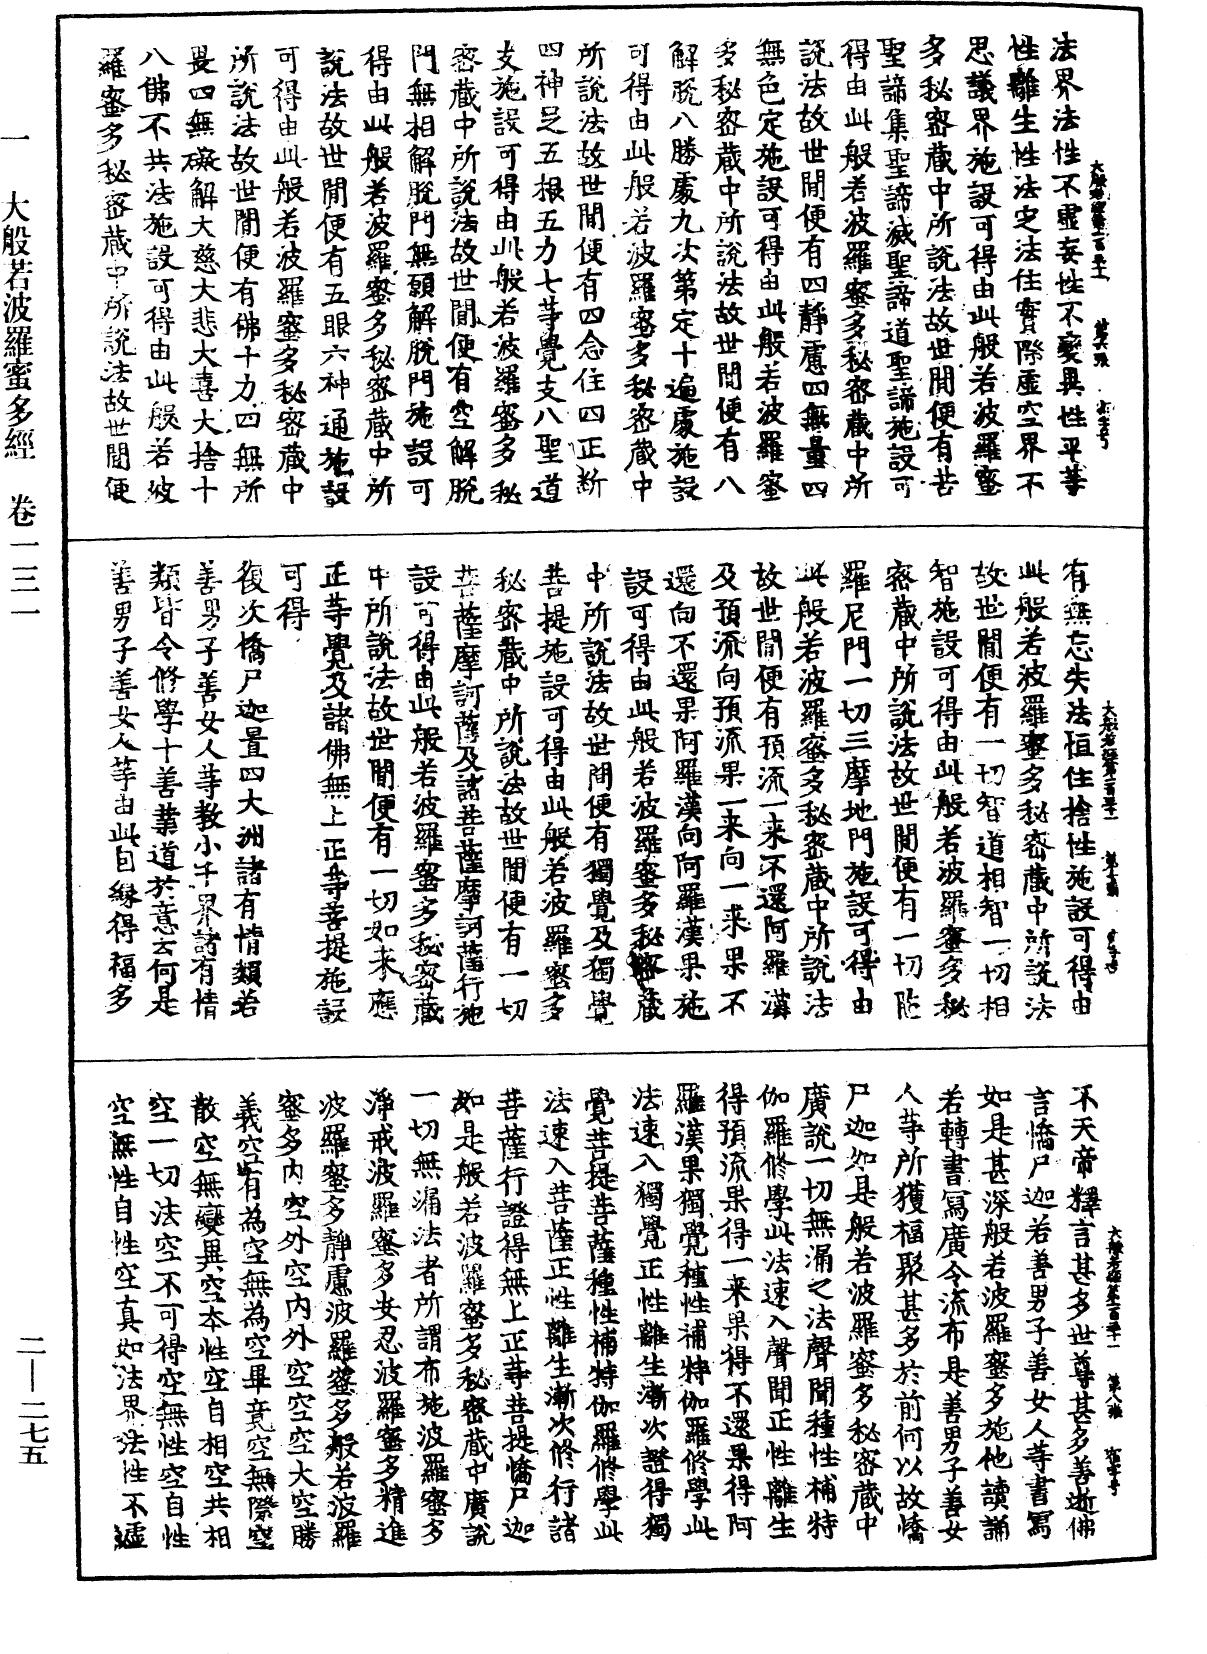 法界法性不虛妄性不變異性平等
性離生性法定法住實際虛空界不
思議界施設可得由此般若波羅蜜
多秘密藏中所說法故世間便有苦
聖諦集聖諦滅聖諦道聖諦施設可
得由此般若波羅蜜多秘密藏中所
說法故世間便有四靜慮四無量四
無色定施設可得由此般若波羅蜜
多秘密藏中所說法故世間便有八
解脫八勝處九次第定十遍處施設
可得由此般若波羅蜜多秘密藏中
所說法故世間便有四念住四正斷
四神足五根五力七等覺支八聖道
支施設可得由此般若波羅蜜多秘
密藏中所說法故世間便有空解脫
門無相解脫門無願解脫門施設可
得由此般若波羅蜜多秘密藏中所
說法故世間便有五眼六神通施設
可得由此般若波羅蜜多秘密藏中
所說法故世間便有佛十力四無所
畏四無礙解大慈大悲大喜大捨十
八佛不共法施設可得由此般若波
羅蜜多秘密藏中所說法故世間便
有無忘失法恒住捨性施設可得由
此般若波羅蜜多秘密藏中所說法
故世間便有一切智道相智一切相
智施設可得由此般若波羅蜜多秘
密藏中所說法故世間便有一切陁
羅尼門一切三摩地門施設可得由
此般若波羅蜜多秘密藏中所說法
故世間便有預流一来不還阿羅漢
及預流向預流果一来向一来果不
還向不還果阿羅漢向阿羅漢果施
設可得由此般若波羅蜜多秘密藏
中所說法故世間便有獨覺及獨覺
菩提施設可得由此般若波羅蜜多
秘密藏中所說法故世間便有一切
菩薩摩訶薩及諸菩薩摩訶薩行施
設可得由此般若波羅蜜多秘密藏
中所說法故世間便有一切如来應
正等覺及諸佛無上正等菩提施設
可得
復次憍尸迦置四大洲諸有情類若
善男子善女人等教小千界諸有情
類皆令修學十善業道於意云何是
善男子善女人等由此因緣得福多
不天帝釋言甚多世尊甚多善逝佛
言憍尸迦若善男子善女人等書寫
如是甚深般若波羅蜜多施他讀誦
若轉書寫廣令流布是善男子善女
人等所獲福聚甚多於前何以故憍
尸迦如是般若波羅蜜多秘密藏中
廣說一切無漏之法聲聞種性補特
伽羅修學此法速入聲聞正性離生
得預流果得一来果得不還果得阿
羅漢果獨覺種性補特伽羅修學此
法速入獨覺正性離生漸次證得獨
覺菩提菩薩種性補特伽羅修學此
法速入菩薩正性離生漸次修行諸
菩薩行證得無上正等菩提憍尸迦
如是般若波羅蜜多秘密藏中廣說
一切無漏法者所謂布施波羅蜜多
淨戒波羅蜜多安忍波羅蜜多精進
波羅蜜多靜慮波羅蜜多般若波羅
蜜多內空外空內外空空空大空勝
義空有為空無為空畢竟空無際空
散空無變異空本性空自相空共相
空一切法空不可得空無性空自性
空無性自性空真如法界法性不虛
一 大般若波羅蜜多經 卷一三一
二—二七五